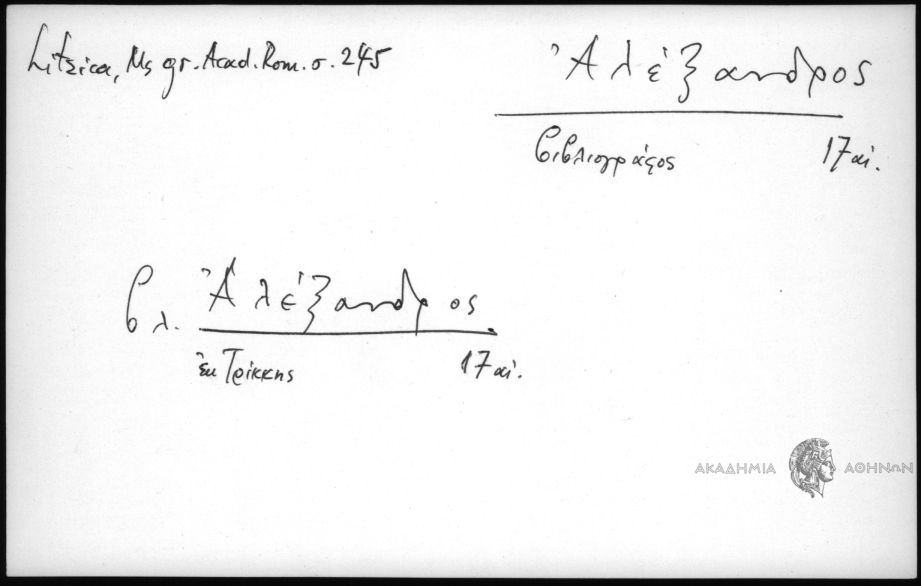 Litzica, Ms gr. Acad. Rom. σ. 245
Ἀλέξανδρος
βιβλιογράφος 17 αἰ.
βλ. Ἀλέξανδρος
ἐκ Τρίκκης 17 αἰ.
ΑΚΑΔΗΜΙΑ ΑΘΗΝΩΝ